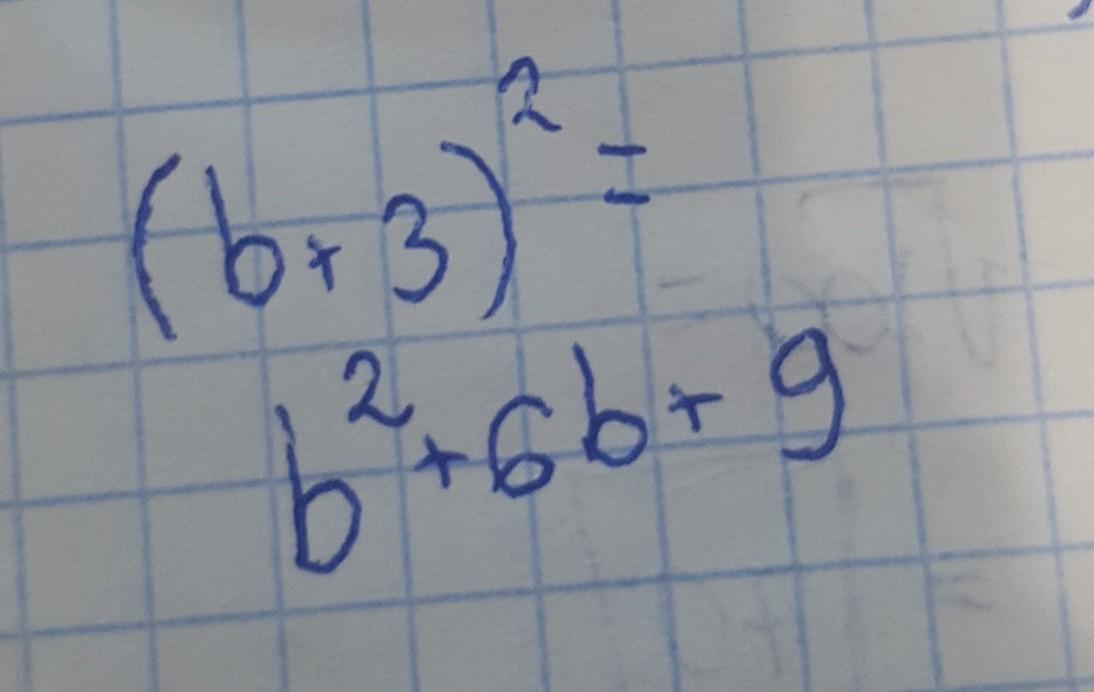 (b+3)² =
b²+6b+9